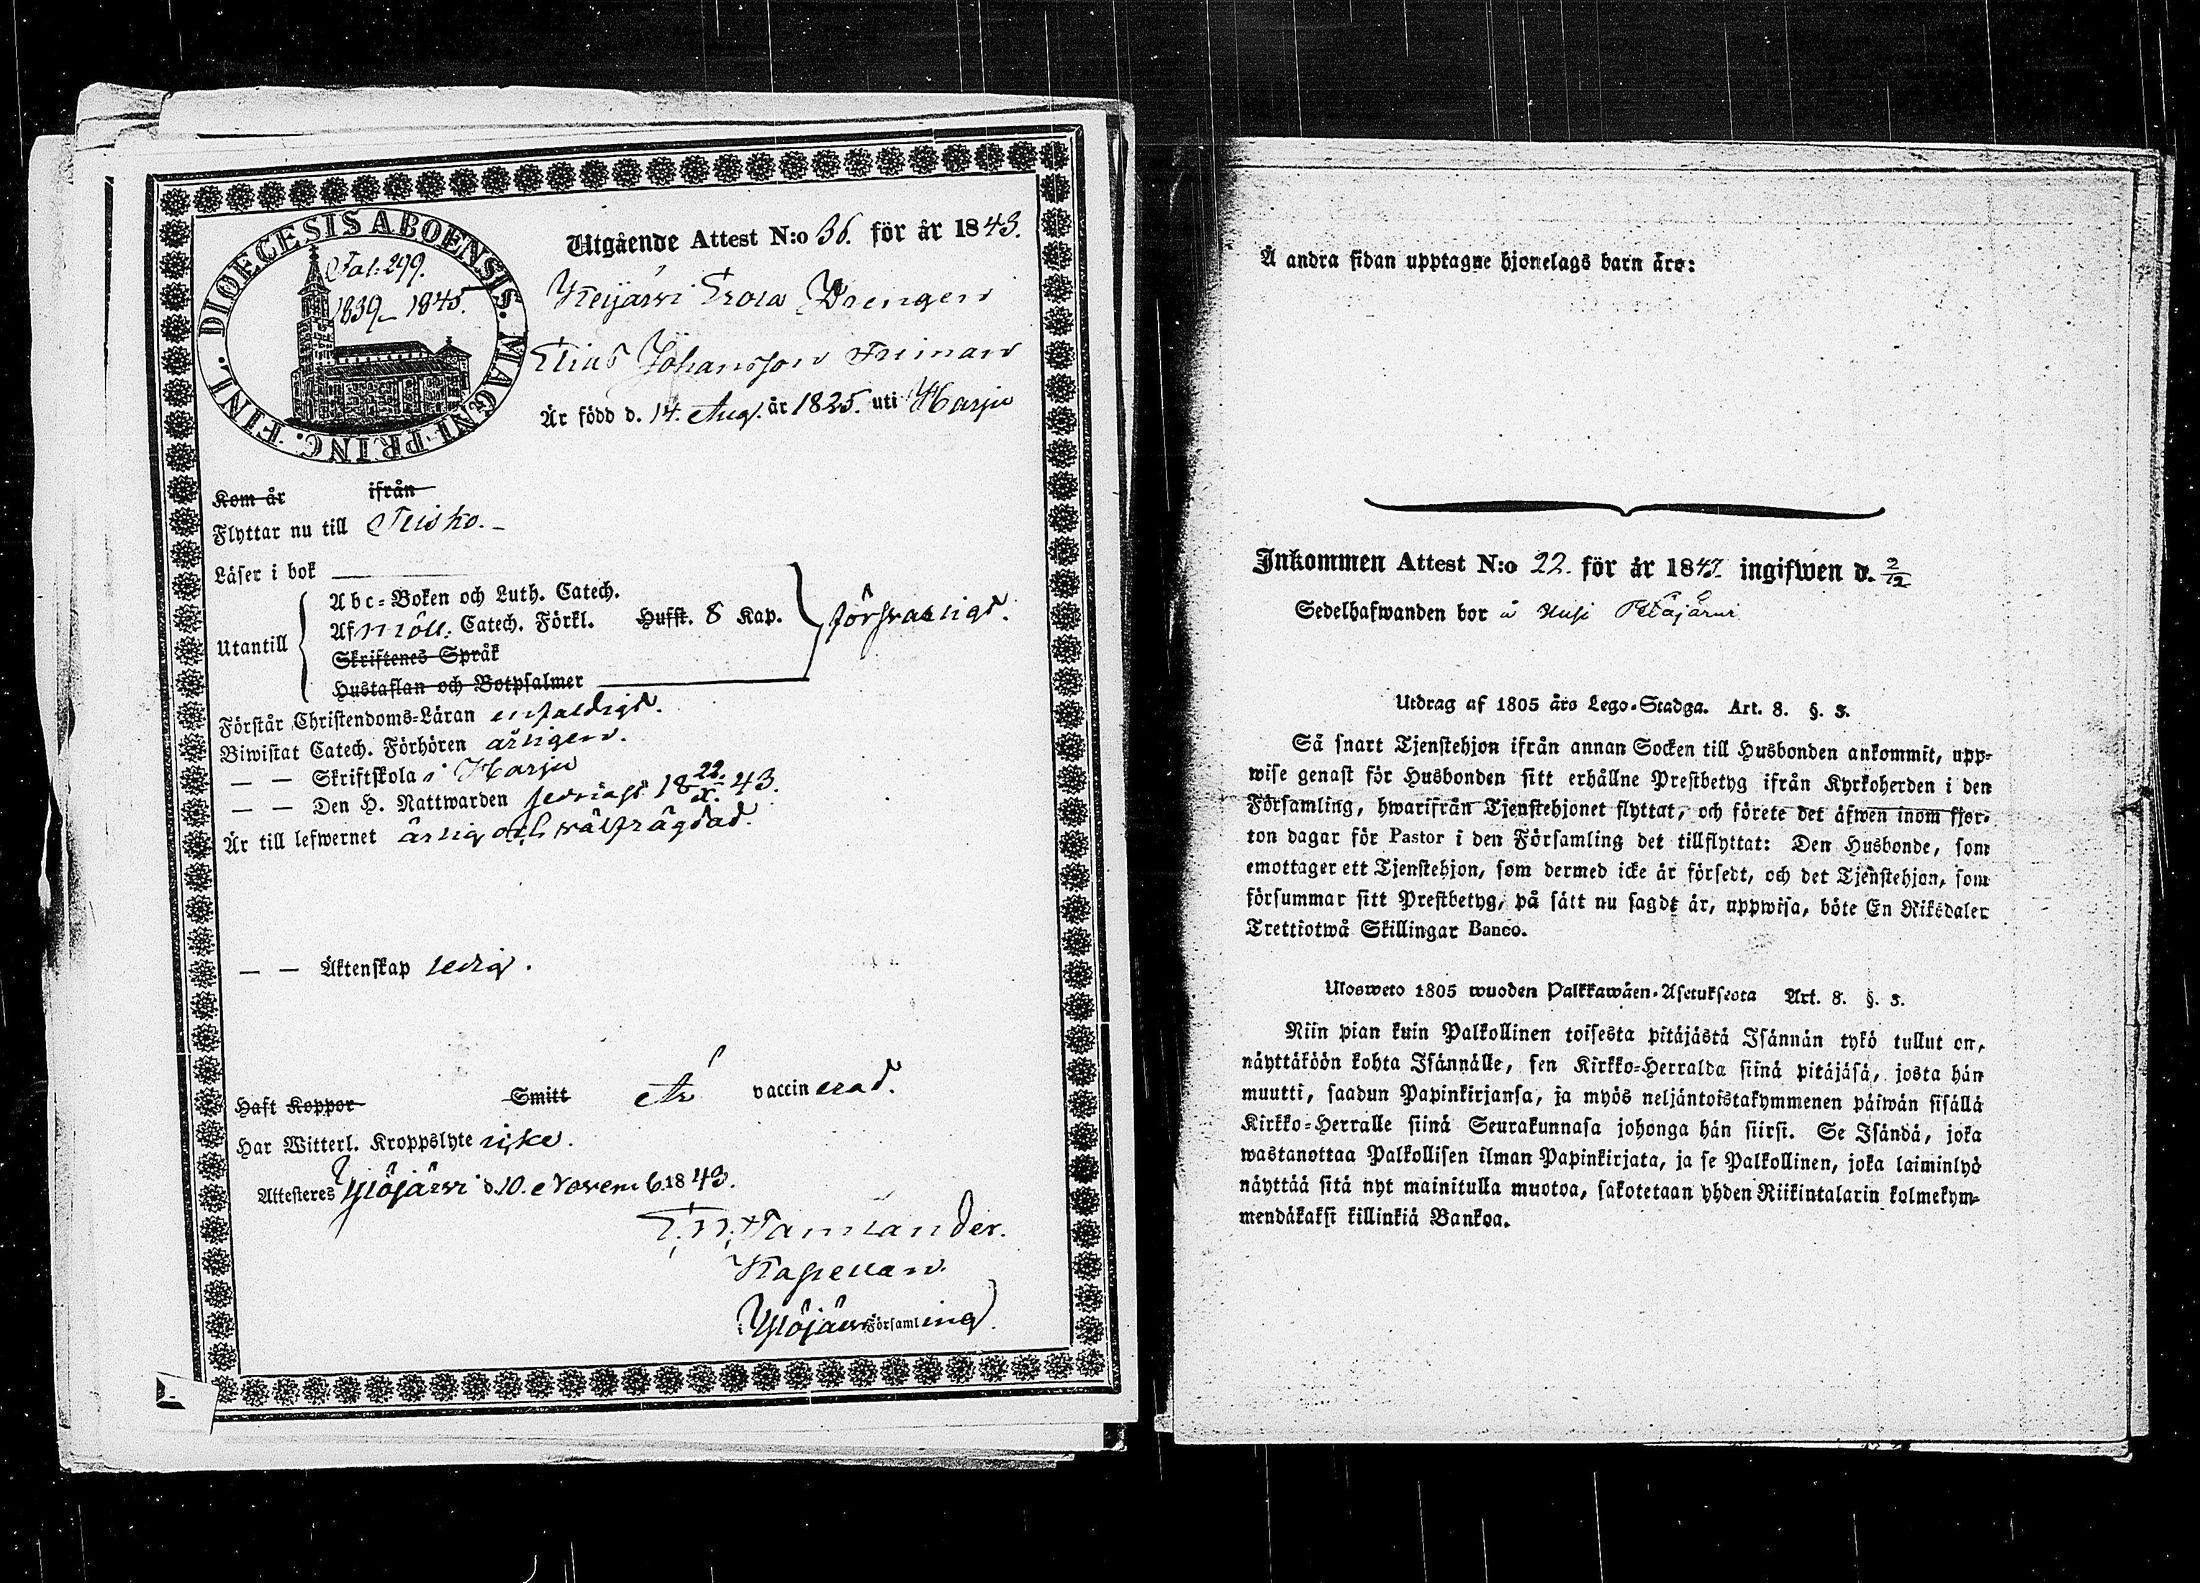 DIOECESIS ABOENSIS. MAGNI PRINC. FINL.
Fol: 299.
1839–1845.
Utgående Attest N:o 36. för år 1843.
Keijärvi Drengen
Elias Johansson Friman
Är född d. 14. Aug. år 1825. uti Harju
Kom år ifrån
Flyttar nu till Teisko. –
Läser i bok
Utantill
Abc-Boken och Luth. Catech.
Af Möll. Catech. Förkl. Husst. 8 Kap.
Skriftenes Språk
Hustaflan och Botpsalmer
försvarligt.
Förstår Christendoms-Läran enfaldigt.
Biwistat Catech. Förhören årligen.
— — Skriftskola i Harju
— — Den H. Nattwarden sednast 18 22/X. 43.
Är till lefwernet ärlig och wälfrägdad.
— — Äktenskap ledig.
Haft Koppor Smitt Är vaccinerad.
Har Witterl. Kroppslyte icke.
Attesteres Ylöjärvi d. 10. Novemb. 1843.
Tamlander.
Kapellan.
i Ylöjärvi Församling.
Å andra sidan upptagne hjonelags barn äro:
Inkommen Attest N:o 22. för år 1843. ingifwen d. 2/12
Sedelhafwanden bor å
Utdrag af 1805 års Lego-Stadga. Art. 8. §. 3.
Så snart Tjenstehjon ifrån annan Socken till Husbonden ankommit, upp-
wise genast för Husbonden sitt erhållne Prestbetyg ifrån Kyrkoherden i den
Församling, hwarifrån Tjenstehjonet flyttat, och förete det äfwen inom fjor-
ton dagar för Pastor i den Församling det tillflyttat: Den Husbonde, som
emottager ett Tjenstehjon, som dermed icke är försedt, och det Tjenstehjon, som
försummar sitt Prestbetyg, på sätt nu sagdt är, uppwisa, böte En Riksdaler
Trettiotwå Skillingar Banco.
Ulosweto 1805 wuoden Palkkawäen-Asetuksesta Art. 8. §. 3.
Niin pian kuin Palkollinen toisesta pitäjästä Isännän tykö tullut on,
näyttäköön kohta Isännälle, sen Kirkko-Herralda siinä pitäjäsä, josta hän
muutti, saadun Papinkirjansa, ja myös neljäntoistakymmenen päiwän sisällä
Kirkko-Herralle siinä Seurakunnasa johonga hän siirsi. Se Isändä, joka
wastanottaa Palkollisen ilman Papinkirjata, ja se Palkollinen, joka laiminlyö
näyttää sitä nyt mainitulla muotoa, sakotetaan yhden Riikintalarin kolmekym-
mendäkaksi killinkiä Bankoa.